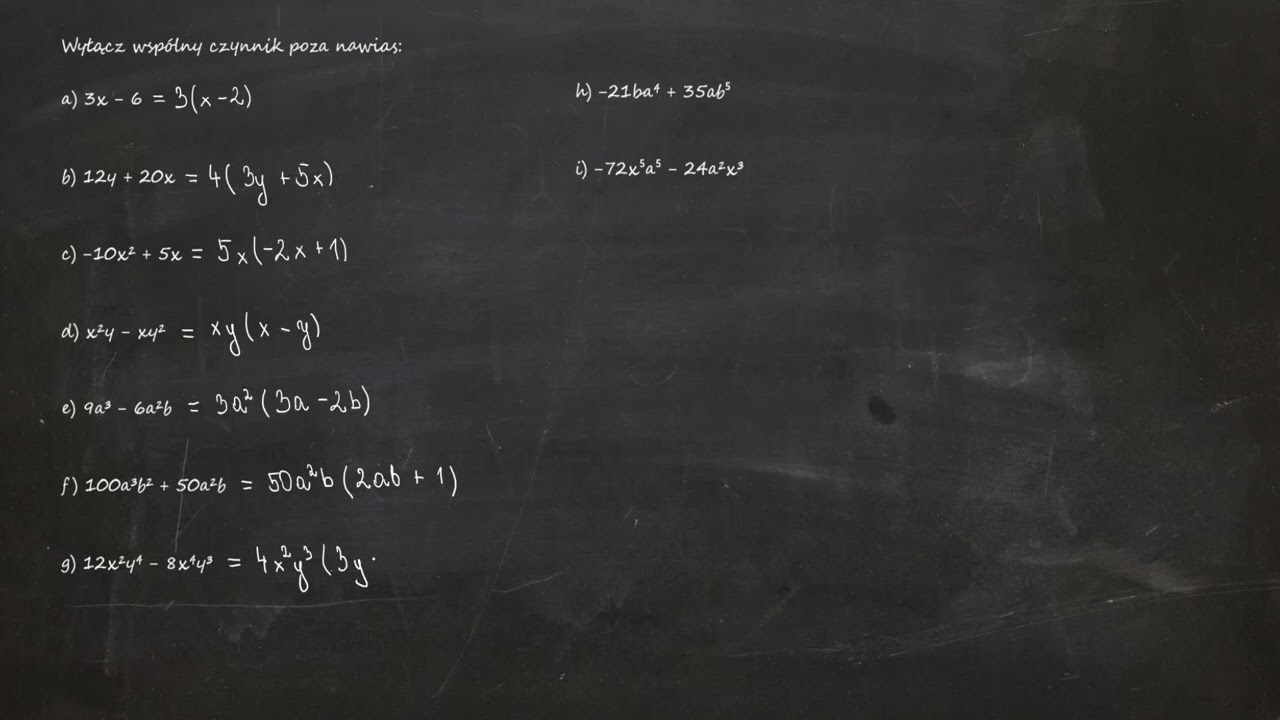 Wyłącz wspólny czynnik poza nawias:
a) 3x - 6 = 3(x-2)
b) 12y + 20x = 4(3y+5x)
c) -10x² + 5x = 5x(-2x+1)
d) x²y - xy² = xy(x-y)
e) 9a³ - 6a²b = 3a²(3a-2b)
f) 100a³b² + 50a²b = 50a²b(2ab+1)
g) 12x²y⁴ - 8x⁴y³ = 4x²y³(3y
h) -21ba⁴ + 35ab⁵
i) -72x⁵a⁵ - 24a²x³